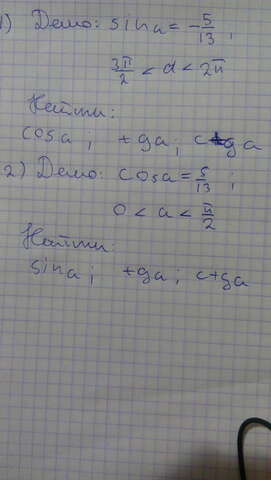 1) Дано: sin a = -5/13 ,
3π/2 < α < 2π
Найти:
cos a ; tg a ; ctg a
2) Дано: cos a = 5/13 ;
0 < a < π/2
Найти:
sin a ; tg a ; ctg a